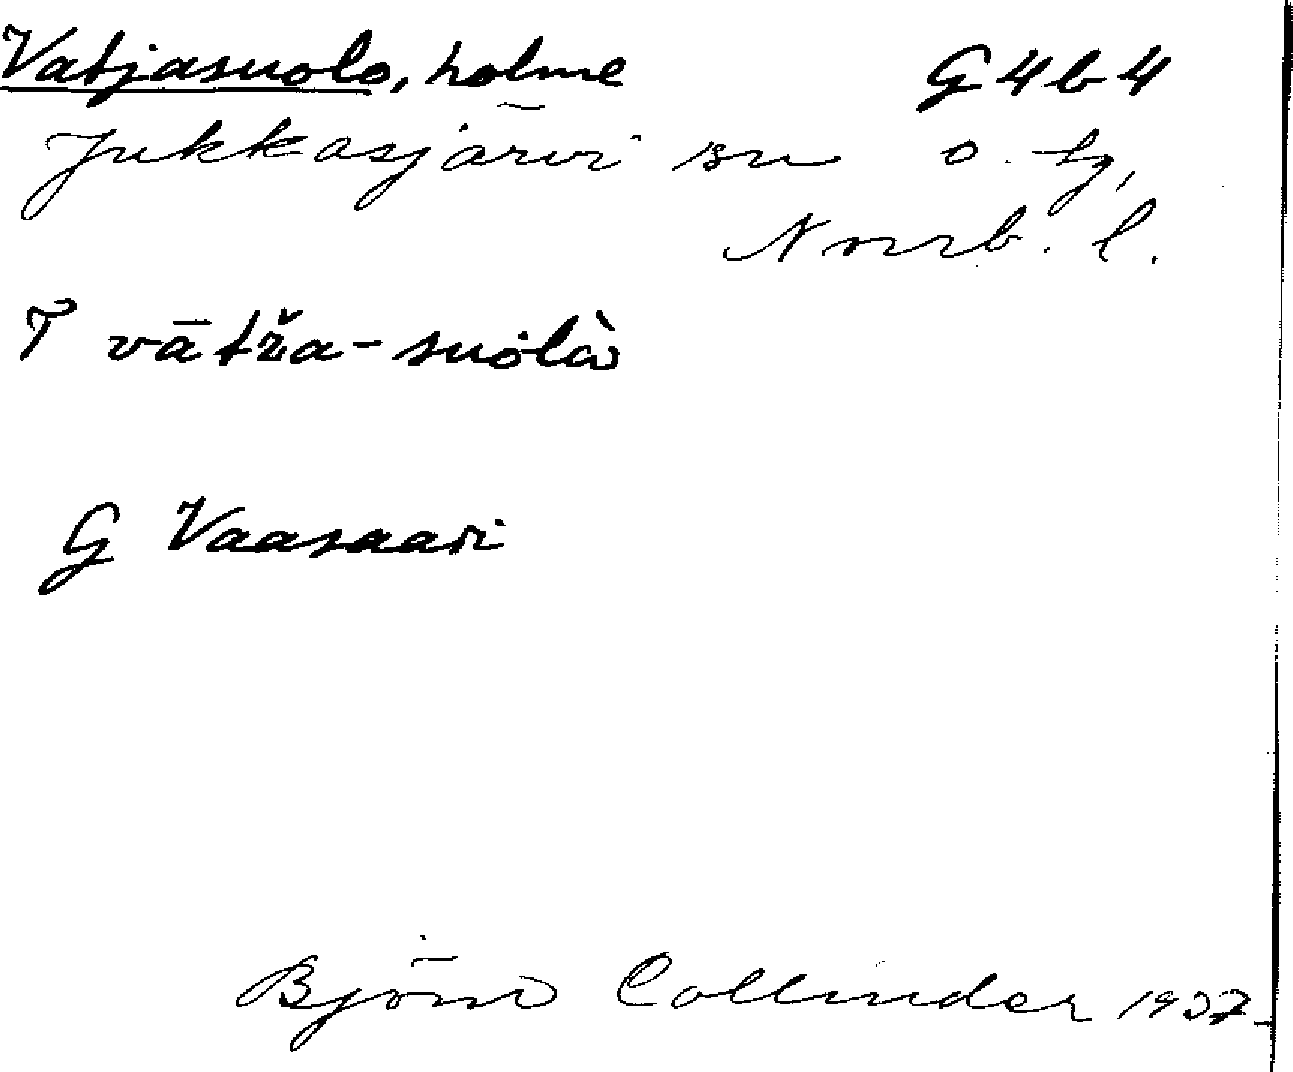 Vatjasuolo, holme G4b4
Jukkasjärvi sn o. tg,
Norrb. l.
T vātža-suolà
G Vaasaari
Björn Collinder 1937